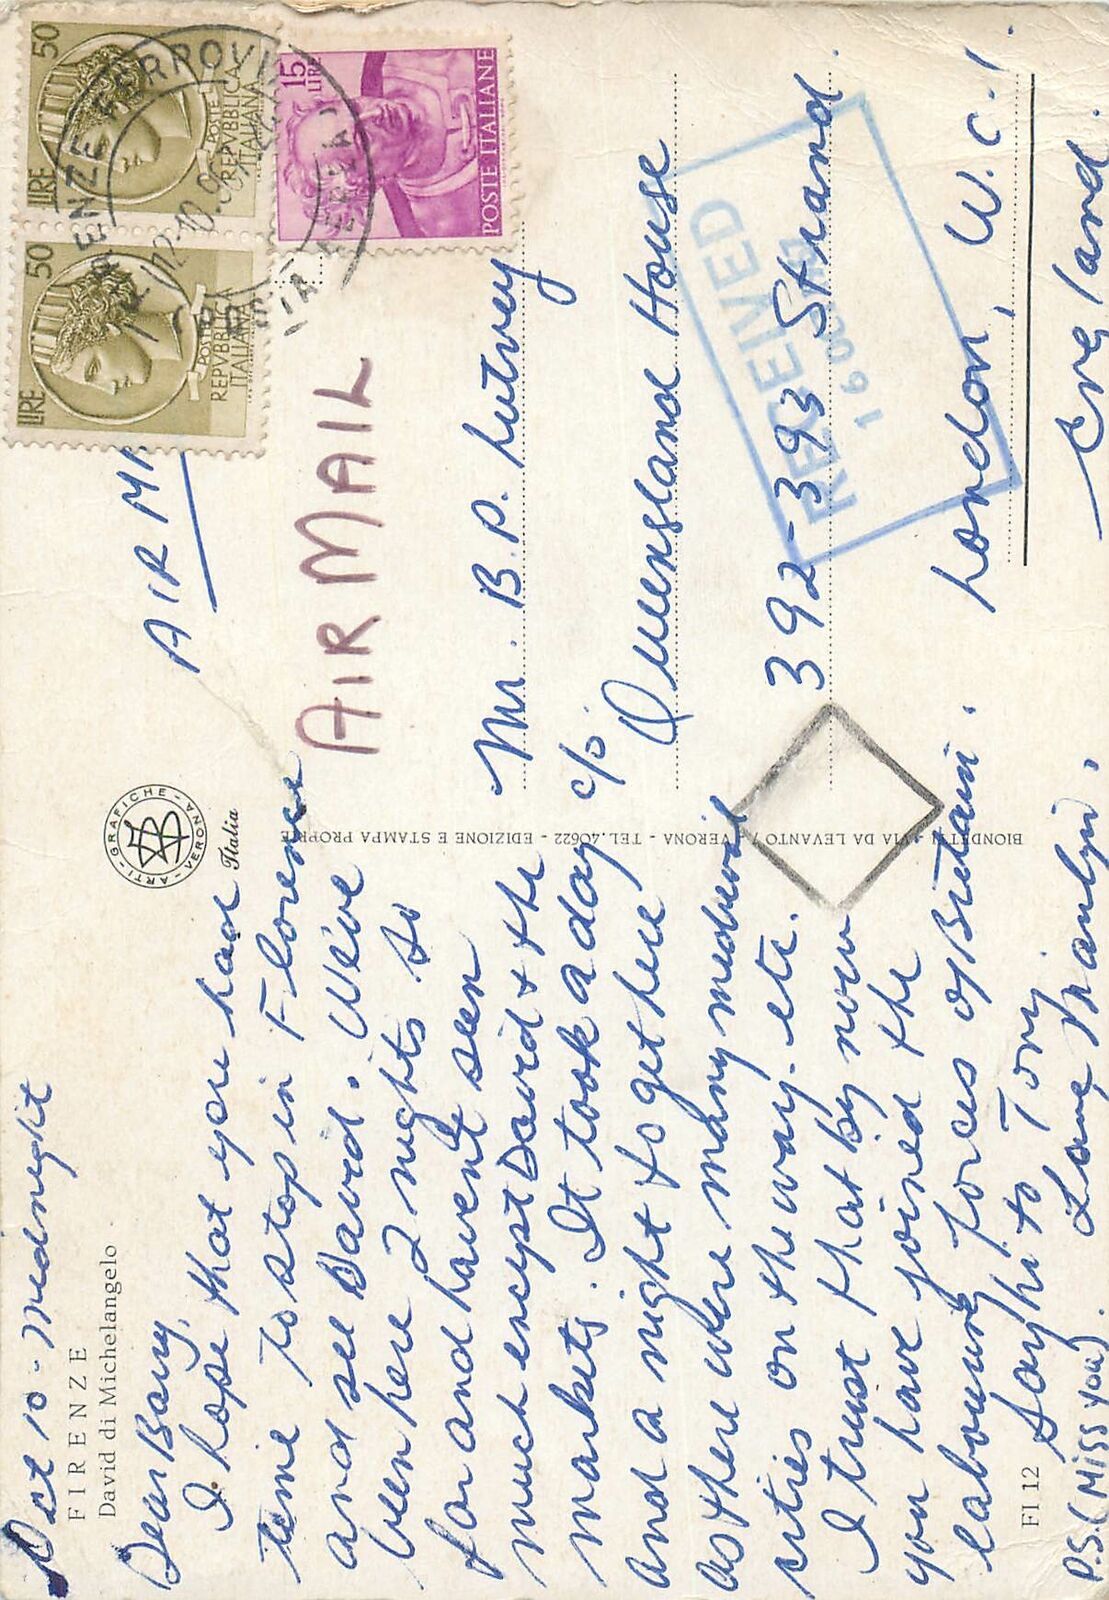 Oct 10 - Midnight
FIRENZE
David di Michelangelo
Dear Barry,
I hope that you have
time to stop in Florence
and see David. We've
been here 2 nights so
far and havent seen
much except David & the
markets. It took a day
and a night to get here
as there were many medieval
cities on the way. etc.
I trust that by now
you have joined the
labouring forces of Britain.
Say hi to Tony
Love Marilyn.
P.S. (Miss you)
FI 12
ARTI - GRAFICHE - VERONA
Italia
BIONDETTI - VIA DA LEVANTO 7 - VERONA - TEL. 40622 - EDIZIONE E STAMPA PROPRIE
LIRE 50
POSTE
REPVBBLICA
ITALIANA
LIRE 50
POSTE
REPVBBLICA
ITALIANA
15
LIRE
POSTE ITALIANE
FIRENZE FERROVIA
12-10
AIR MA
AIR MAIL
Mr. B.P. Lutvey
c/o.
Queensland House
392-393 Strand.
London, W.C.1
England.
RECEIVED
16 OC